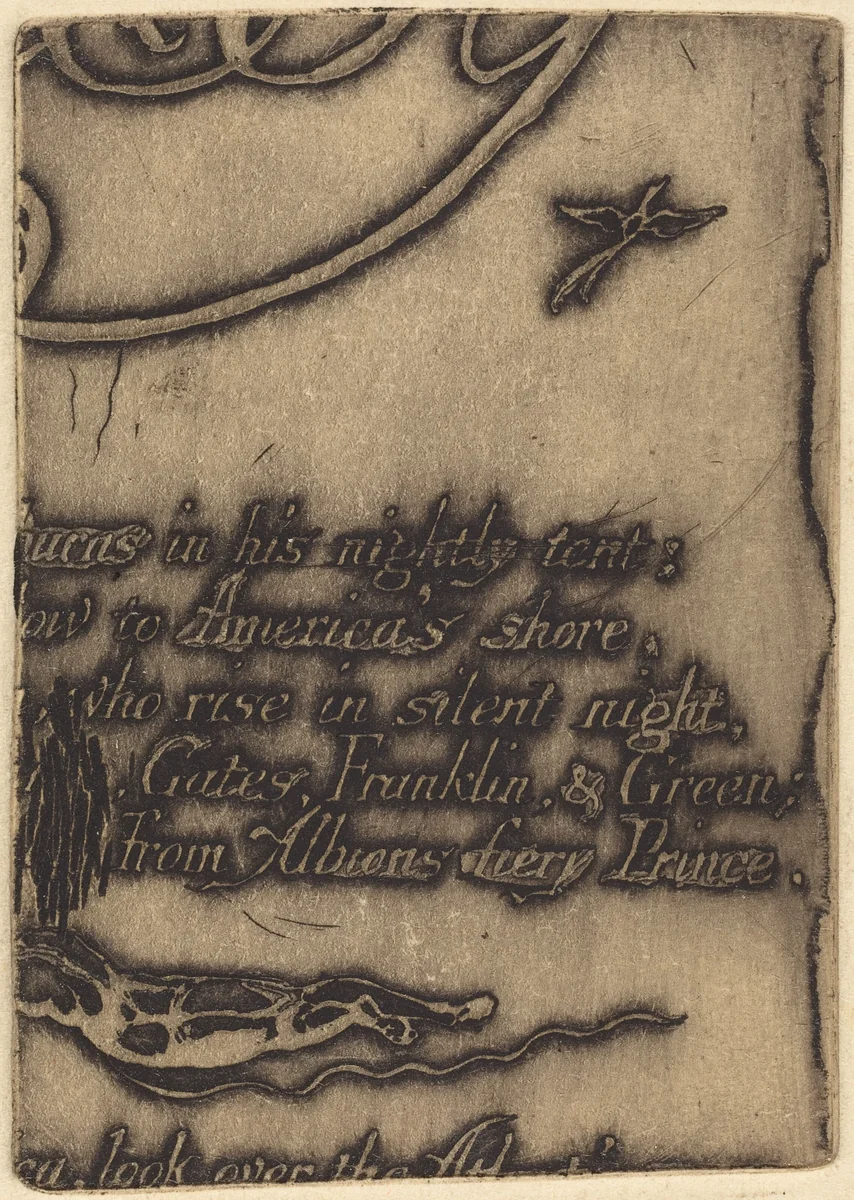 burns in his nightly tent:
ow to America's shore,
, who rise in silent night,
, Gates, Franklin, & Green;
From Albions fiery Prince.
look over the